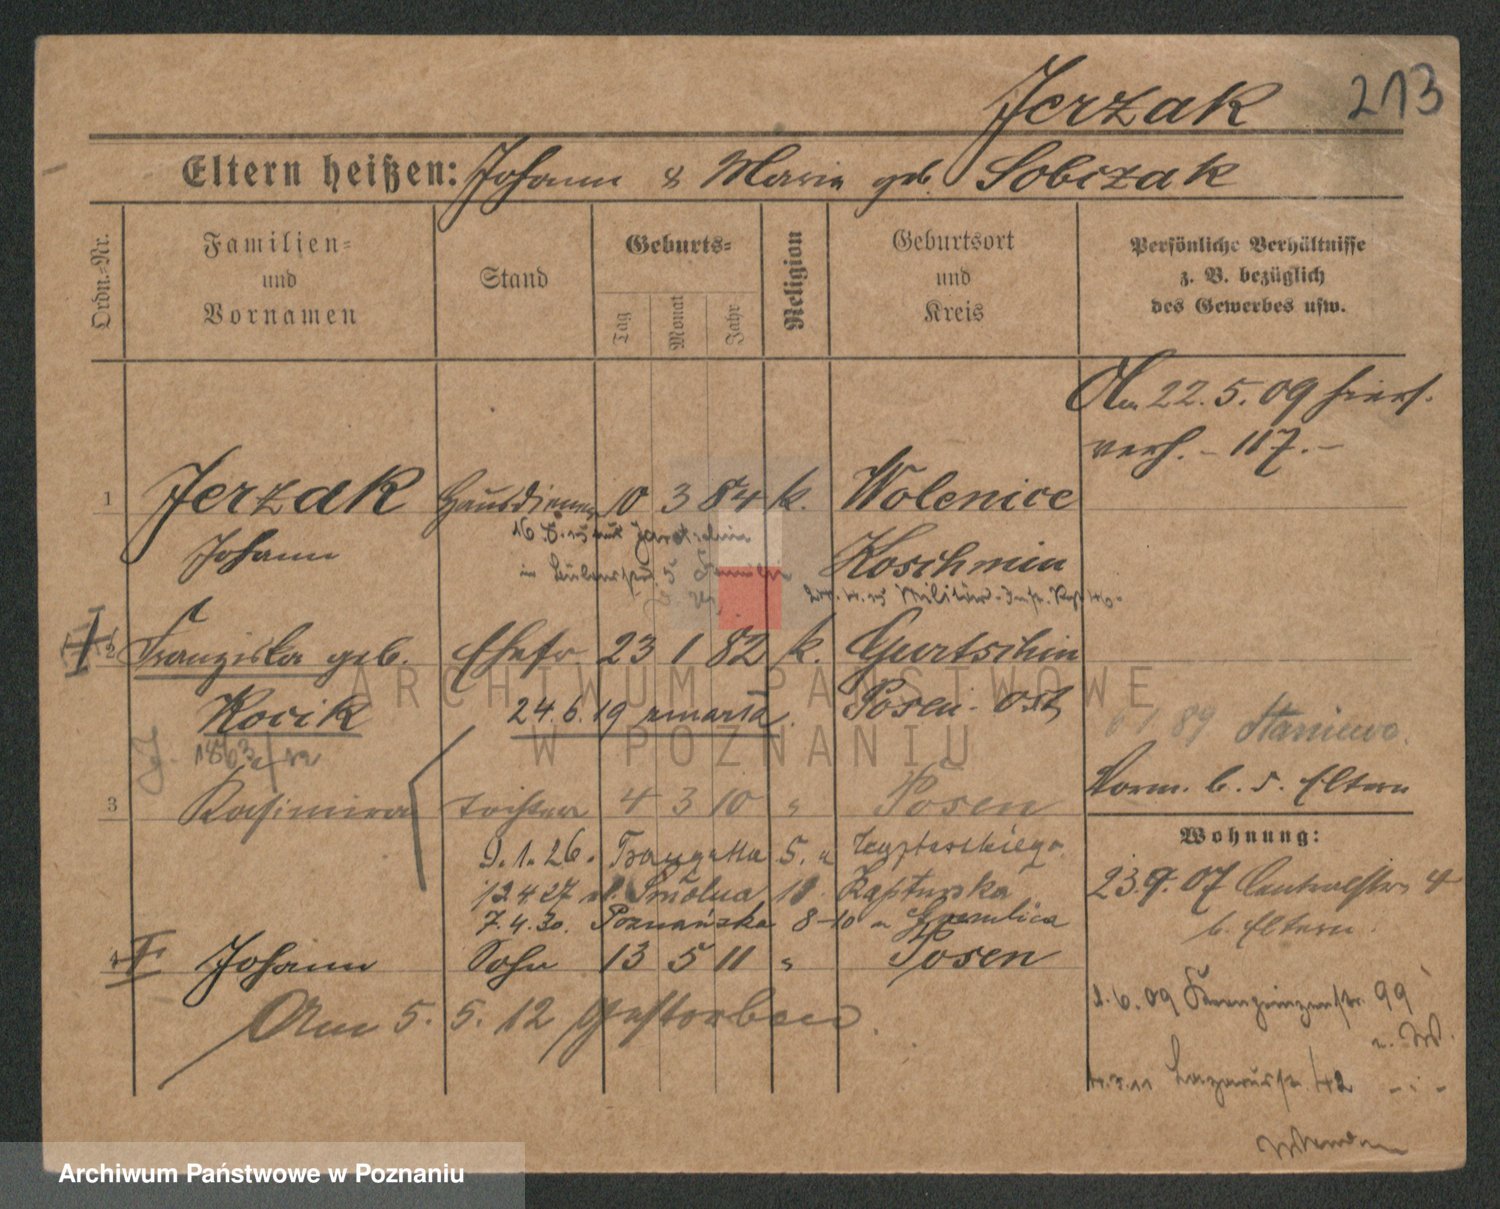 213
Jerzak
Eltern heißen: Johann & Maria geb. Sobczak
Ordn.-Nr.
Familien-
und
Vornamen
Stand
Geburts-
Tag
Monat
Jahr
Religion
Geburtsort
und
Kreis
Persönliche Verhältnisse
z. B. bezüglich
des Gewerbes usw.
Am 22.5.09 hiers.
verh. - 117. -
1 Jerzak Hausdiener 10 3 84 k. Wolenice
Johann Koschmin
16.8.15 aus
2 Franziska geb. Ehefr 23 1 82 k. Gurtschin
Kocik
24.6.19 zmarła. Posen-Ost
89 Staniewo.
3 Kasimira Tochter 4 3 10 " Posen
Vorm. b. s. Eltern
9.1.26. Traugutta 5.
12.4.27 Smolna 10. Kapturska
7.4.30. Poznańska 8-10
4 Johann Sohn 13 5 11 " Posen
Am 5. 5. 12 gestorben.
Wohnung:
23.9.07 Centralstr. 4
b. Eltern.
2.6.09 Kronprinzenstr. 99
Lazarusstr. 42
ARCHIWUM PAŃSTWOWE
W POZNANIU
Archiwum Państwowe w Poznaniu